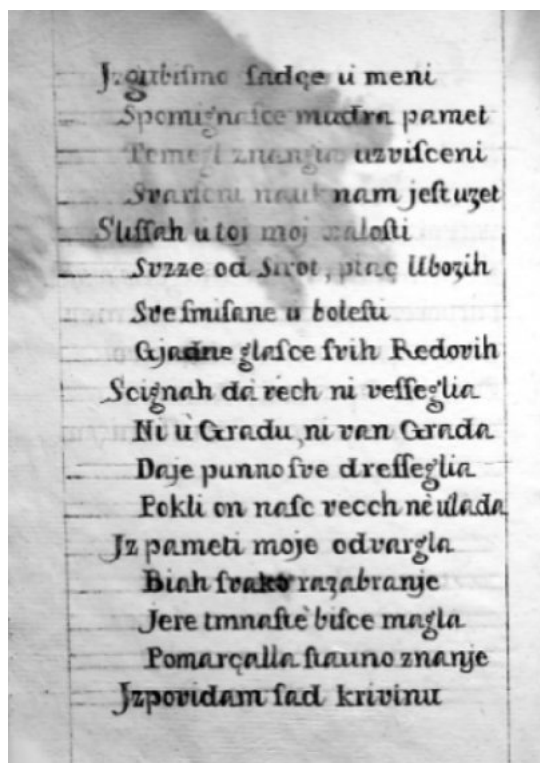 Jzgubismo sadçe u meni
Spomignasce mudra pamet
Temegl znangia uzvisceni
Svarscni nauk nam jest uzet
Slissah u toj moj xalosti
Suzze od Sirot, plaç Ubozih
Sve smisane u bolesti
Gjadne glasce svih Redovih
Scignah da rech ni vesseglia
Ni ù Gradu, ni van Grada
Daje punno sve dresseglia
Pokli on nasc vecch nè ulada
Jz pameti moje odvargla
Biah svako razabranje
Jere tmnastè bisce magla
Pomarçalla stauno znanje
Jzpovidam sad krivinu